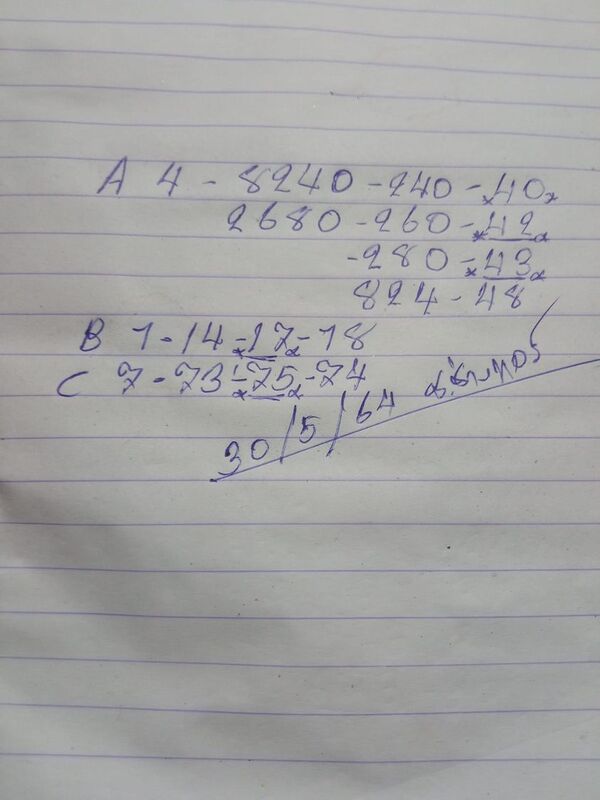 A 4 - 8240 - 240 - ×40×
2680 - 260 - ×42×
- 280 - ×43×
824 - 48
B 1 - 14 - ×17× - 18
C 7 - 73 - ×75× - 74
30/5/64